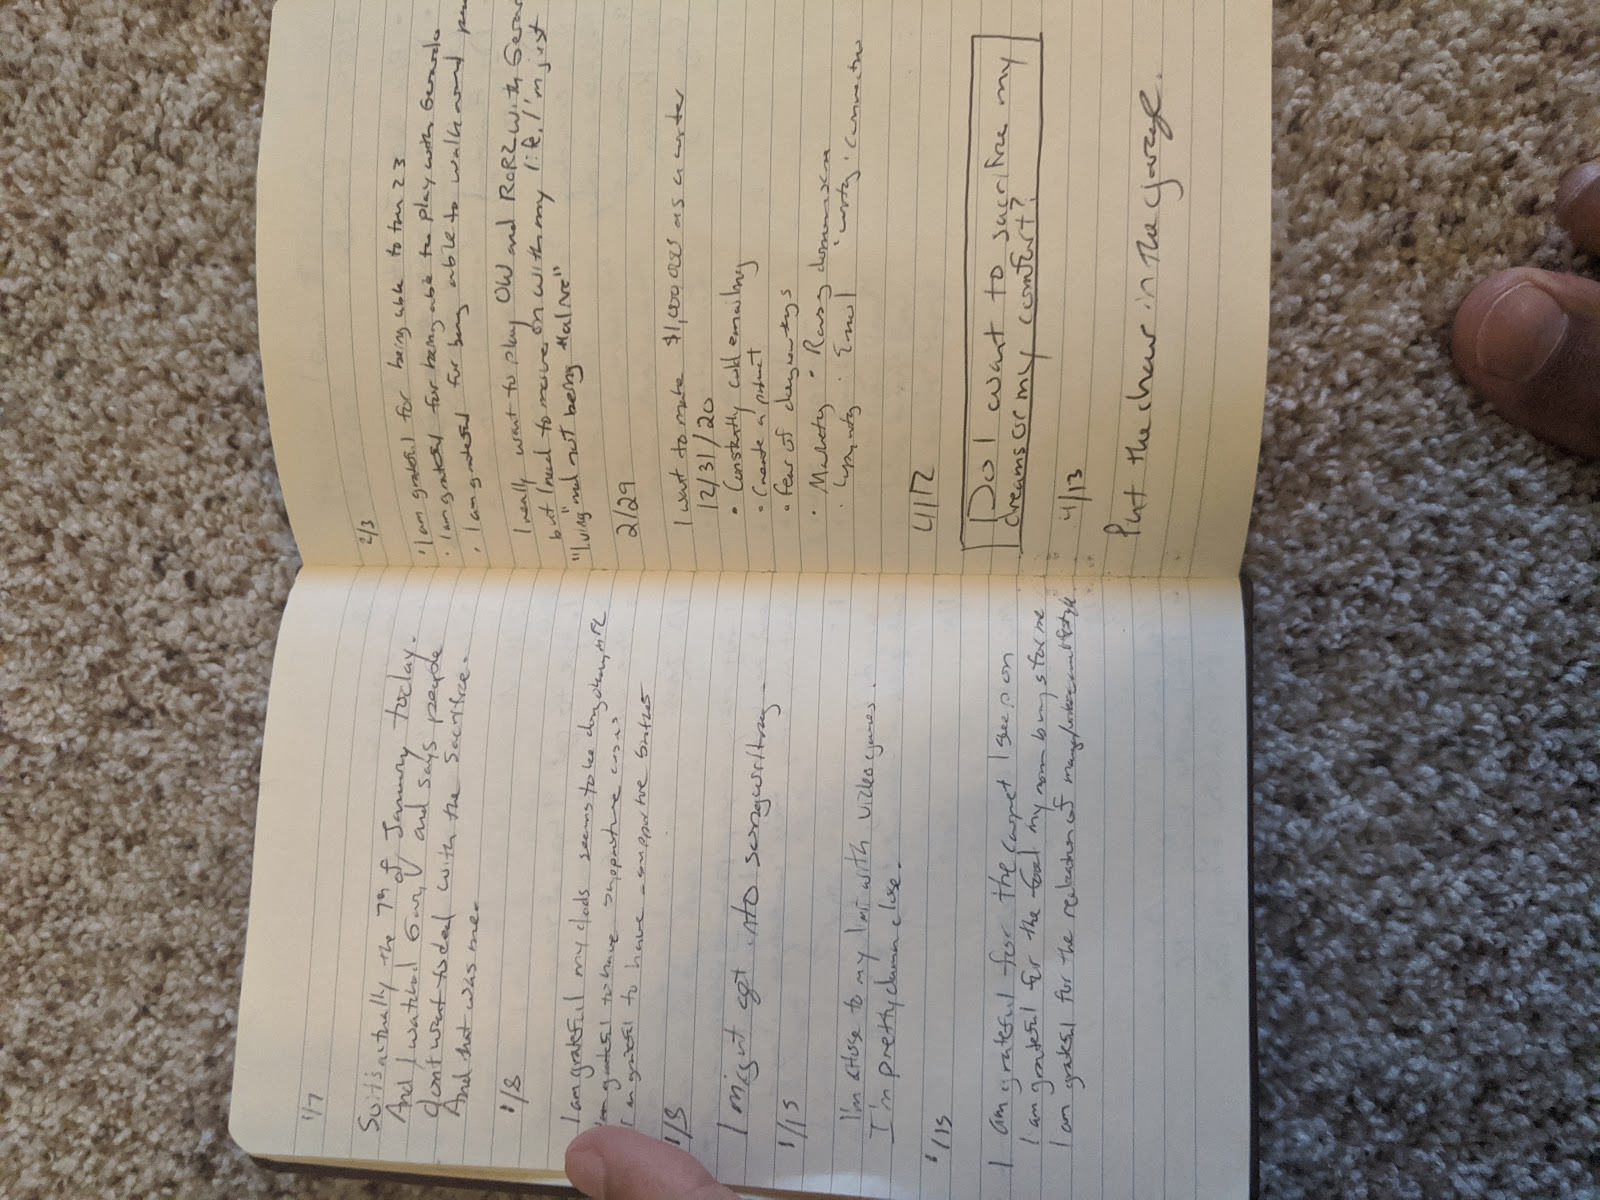 1/7
So it's actually the 7th of January today.
And I watched Gary V and says people
don't want to deal with the sacrifice.
And that was me.
1/8
I am grateful my dads seems to be doing okay
I am grateful to have supportive
I am grateful to have supportive
1/13
I might get into songwriting.
1/15
I'm at close to my limit with video games.
I'm pretty damn close.
1/15
I am grateful for the carpet I sleep on
I am grateful for the food my mom buys for me
I am grateful for the realization of
2/3
• I am grateful for being able to turn 23
• I am grateful for being able to play with
• I am grateful for being able to walk and
I really want to play OW and RoR2 with
but I need to move on with my life. I'm just
"living" and not being "alive"
2/29
I want to make $1,000,000 as a writer
12/31/20
• Constantly cold emailing
• Create a product
• Fear of
• Marketing •
• . Email
4/12
Do I want to sacrifice my
dreams or my comfort?
4/13
Put the chair in the garage.